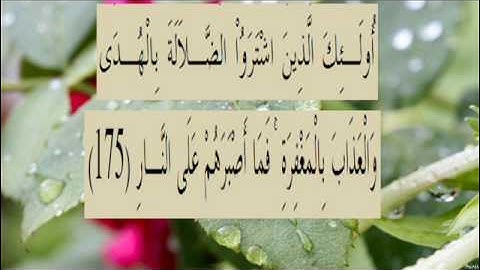 أُولَـئِكَ الَّذِينَ اشْتَرَوُاْ الضَّـلاَلَةَ بِالْهُـدَى
وَالْعَذَابَ بِالْمَغْفِرَةِ ۚ فَمَا أَصْبَرَهُمْ عَلَى النَّـارِ (175)